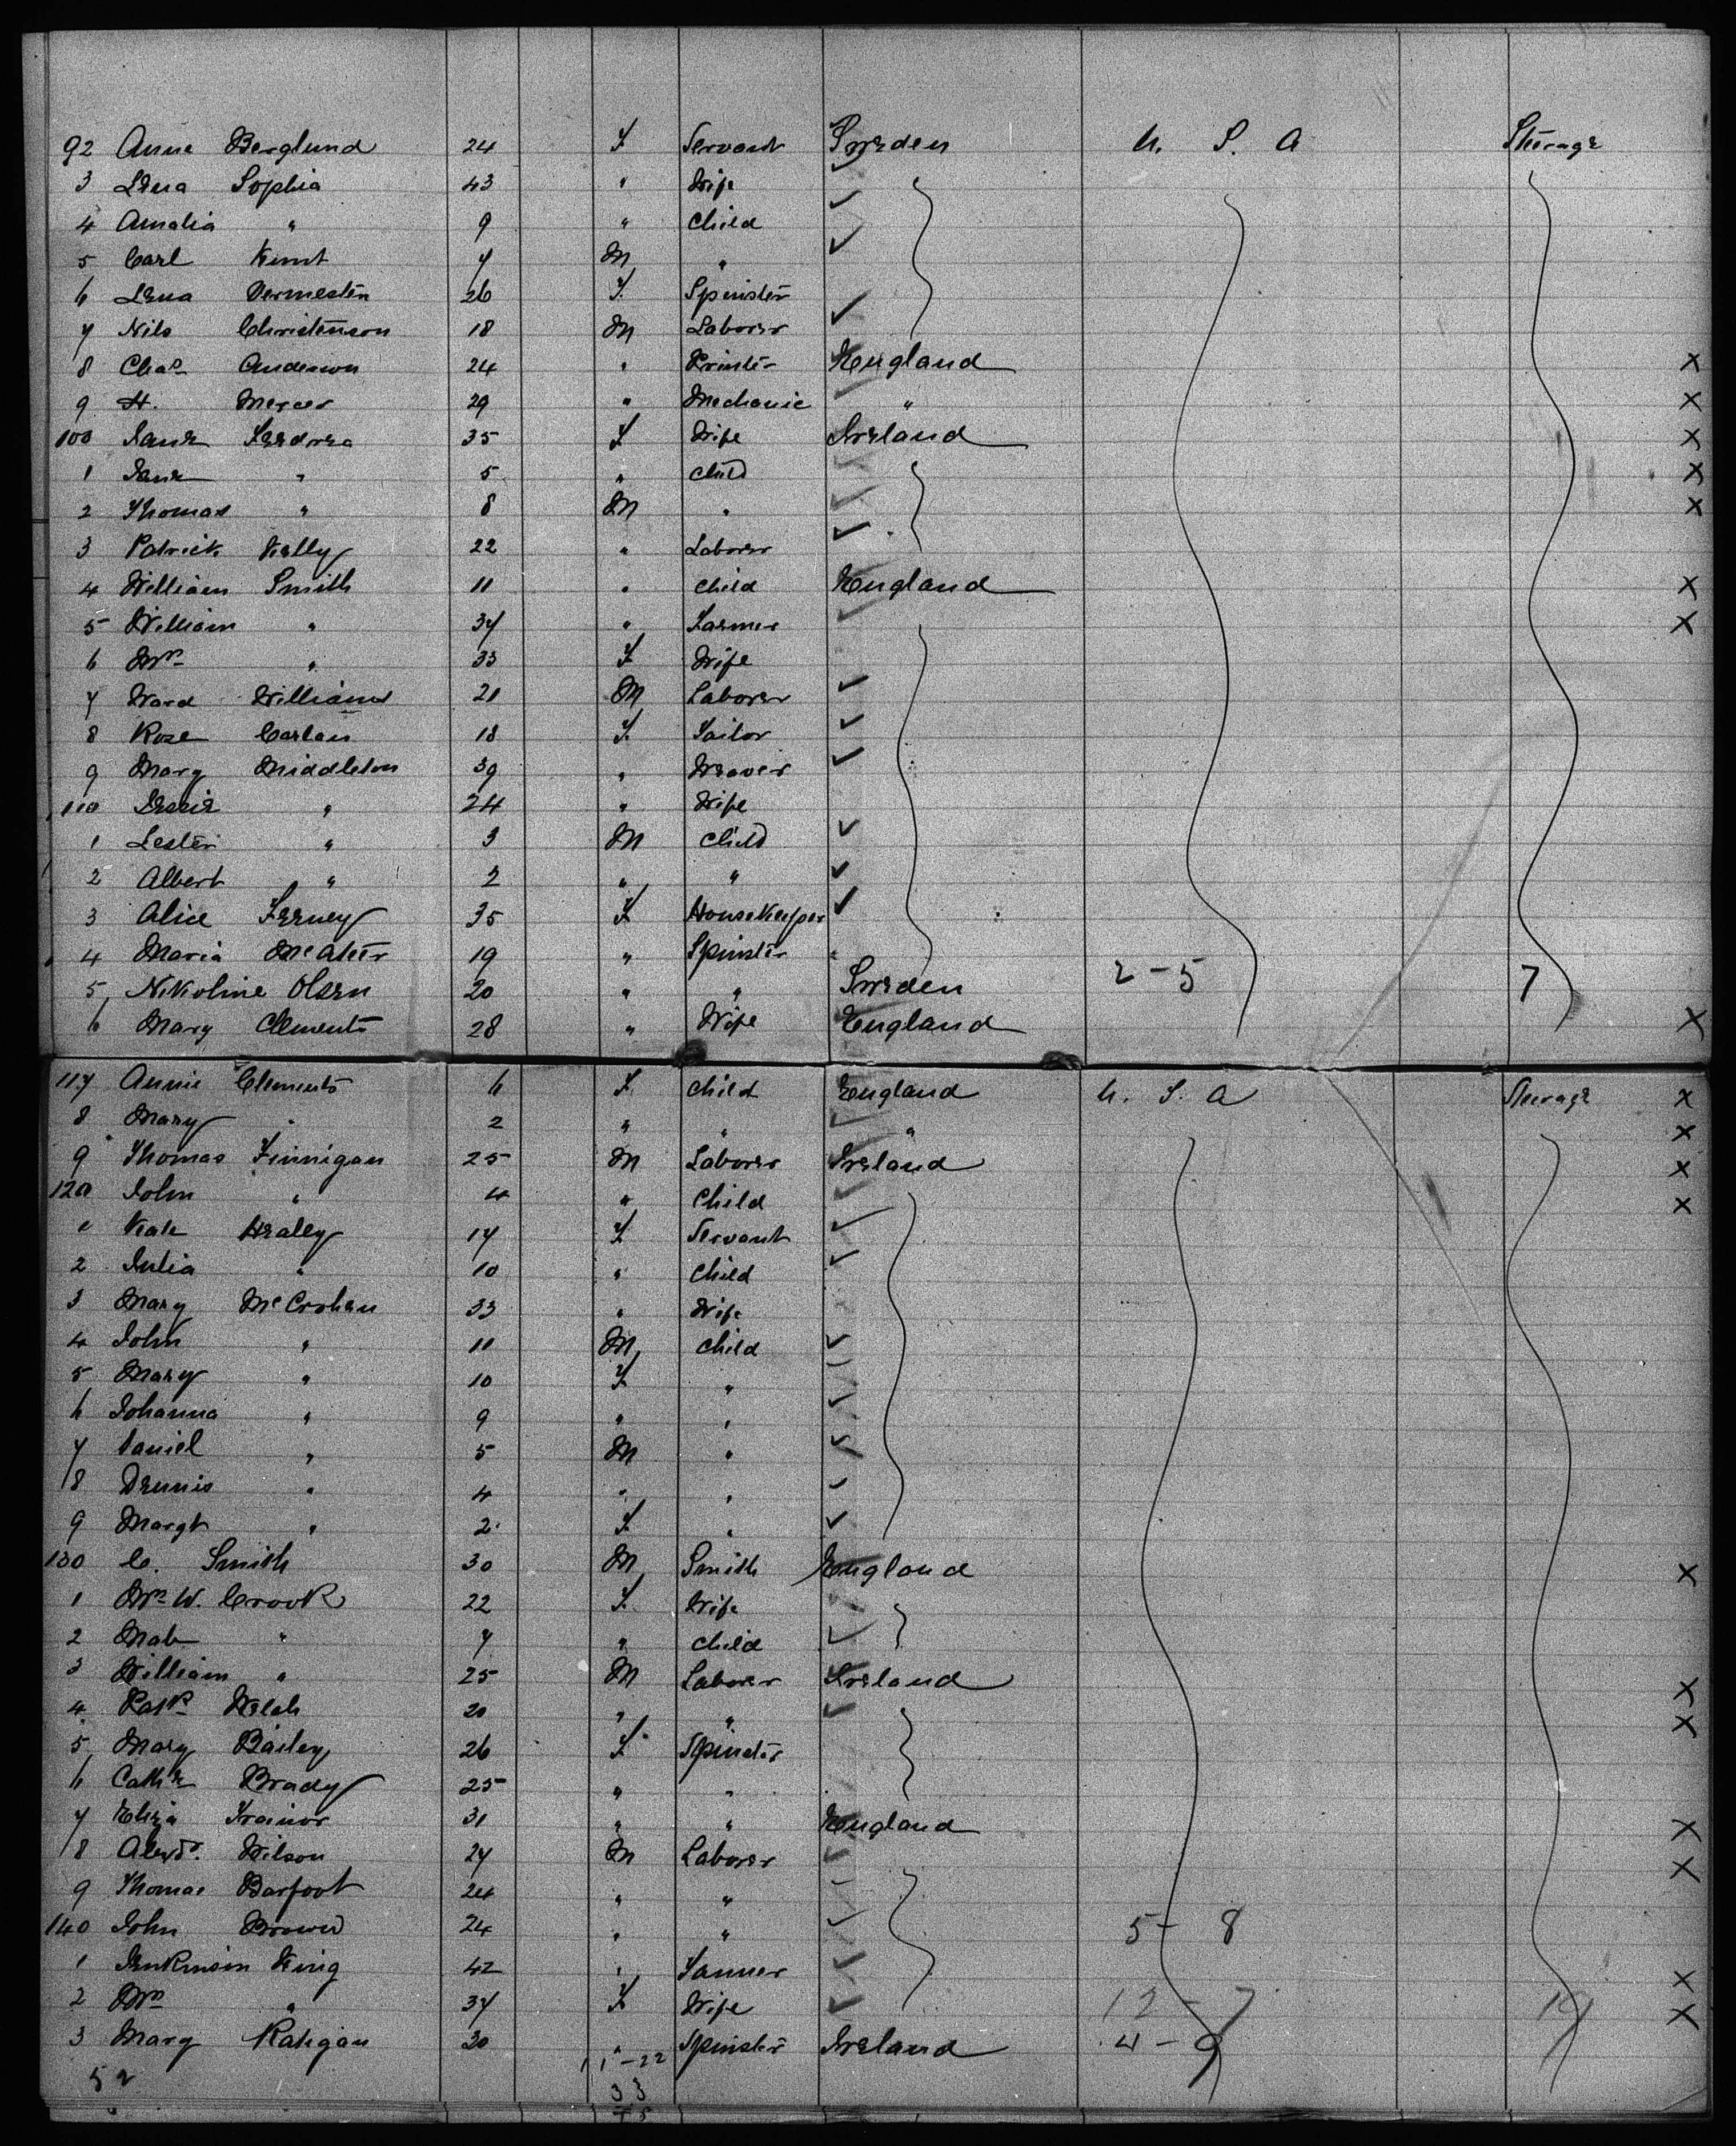 92 Anna Berglund 24 F Servant Sweden U. S. A Steerage
3 Lena Sophia 43 " Wife
4 Amalia " 9 " Child
5 Carl Kunt 7 M "
6 Lena 26 F. Spinster
7 Nils Christenson 18 M Laborer
8 Chas Anderson 24 " Printer England X
9 H. Mercer 29 " Mechanic " X
100 Jane 35 F Wife Ireland X
1 Jane " 5 " Child X
2 Thomas " 8 M " X
3 Patrick Kelly 22 " Laborer
4 William Smith 11 " Child England X
5 William " 37 " Farmer X
6 Mrs " 33 F Wife
7 Ward Williams 21 M Laborer
8 Rose Carlan 18 F. Tailor
9 Mary Middleton 39 " Weaver
110 Jessie " 24 " Wife
1 Lester " 3 M Child
2 Albert " 2 " "
3 Alice Feeney 35 F HouseKeeper
4 Maria McAteer 19 " Spinster
5 Nikoline Olsen 20 " " Sweden 2-5 7
6 Mary Clements 28 " Wife England X
117 Annie Clements 6 F. Child England U. S. A Steerage X
8 Mary " 2 " " " X
9 Thomas Finnigan 25 M Laborer Ireland X
120 John " 4 " Child X
1 Kate Healey 17 F Servant
2 Julia " 10 " Child
3 Mary McCrohan 33 " Wife
4 John " 11 M Child
5 Mary " 10 F "
6 Johanna " 9 " "
7 Daniel " 5 M "
8 Dennis " 4 " "
9 Margt " 2 F "
130 C. Smith 30 M Smith England X
1 Mrs W. Crook 22 F. Wife
2 Mab " 7 " Child
3 William " 25 M Laborer Ireland X
4 Patk Welsh 20 " " X
5 Mary Bailey 26 F Spinster
6 Cathe Brady 25 " "
7 Eliza Trainor 31 " " England X
8 Alexdr. Wilson 27 M Laborer X
9 Thomas Barfoot 24 " "
140 John Brown 24 " " 5-8
1 Jenkinson King 42 " Tanner X
2 Mrs " 37 F Wife 12-7 19 X
3 Mary Ratigan 20 " Spinster Ireland 4-9
52 11-22
33